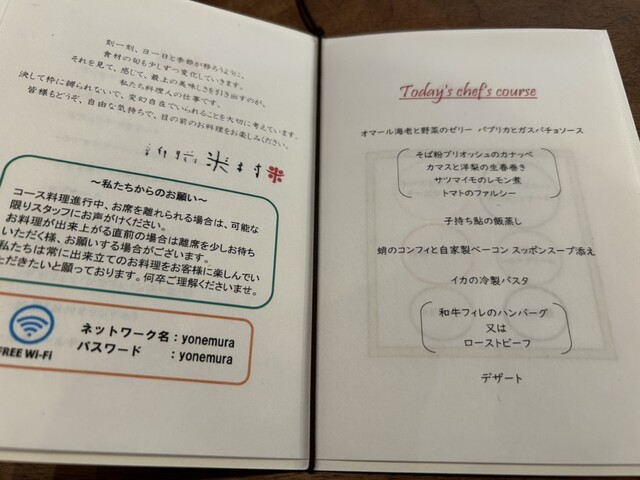 刻一刻、日一日と季節が移ろうように、
食材の旬も少しずつ変化していきます。
それを見て、感じて、最上の美味しさを引き出すのが、
私たち料理人の仕事です。
決して枠に縛られないで、変幻自在でいられることを大切に考えています。
皆様もどうぞ、自由な気持ちで、目の前のお料理をお楽しみください。
米村
～私たちからのお願い～
コース料理進行中、お席を離れられる場合は、可能な
限りスタッフにお声がけください。
お料理が出来上がる直前の場合は離席を少しお待ち
いただく様、お願いする場合がございます。
私たちは常に出来立てのお料理をお客様に楽しんでい
ただきたいと願っております。何卒ご理解くださいませ。
FREE Wi-Fi
ネットワーク名：yonemura
パスワード ：yonemura
Today's chef's course
オマール海老と野菜のゼリー パプリカとガスパチョソース
そば粉ブリオッシュのカナッペ
カマスと洋梨の生春巻き
サツマイモのレモン煮
トマトのファルシー
子持ち鮎の飯蒸し
蛸のコンフィと自家製ベーコン スッポンスープ添え
イカの冷製パスタ
和牛フィレのハンバーグ
又は
ローストビーフ
デザート